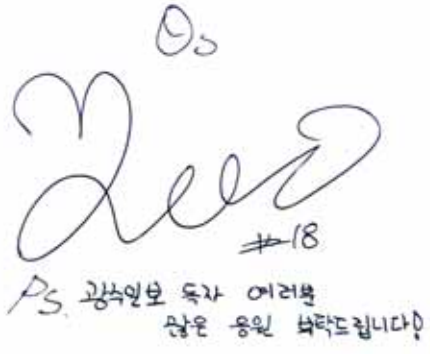 #18
Ps. 광주일보 독자 여러분
많은 응원 부탁드립니다!